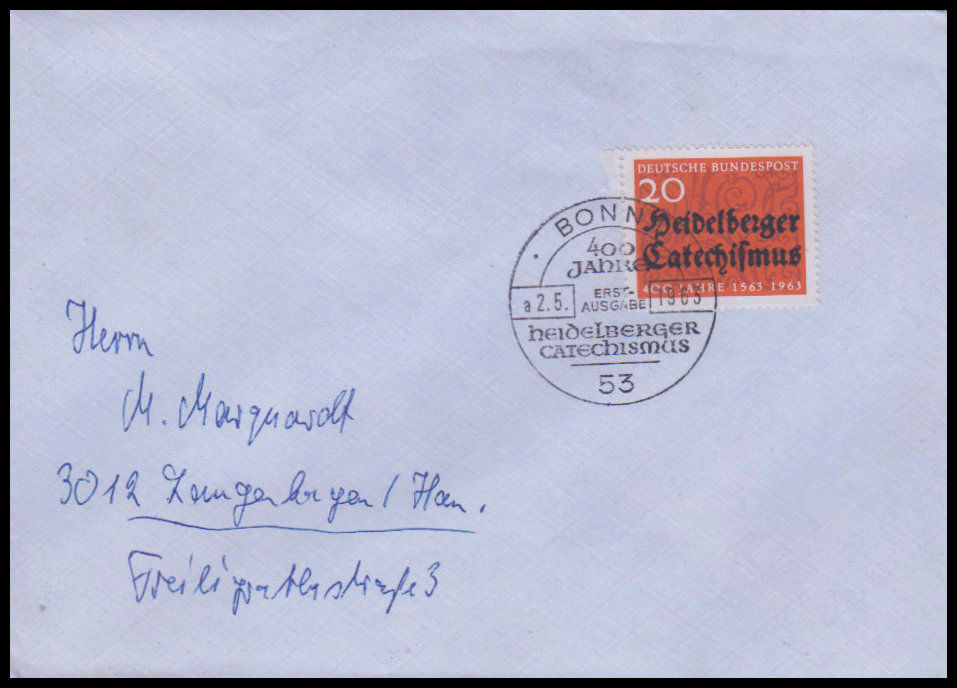 DEUTSCHE BUNDESPOST
20
Heidelberger
Catechismus
400 JAHRE 1563 1963
BONN
400
JAHRE
ERST-
AUSGABE
a 2.5. 1963
HEIDELBERGER
CATECHISMUS
53
Herrn
M. Marquardt
3012 Langenhagen / Han.
Freiligrathstraße 3